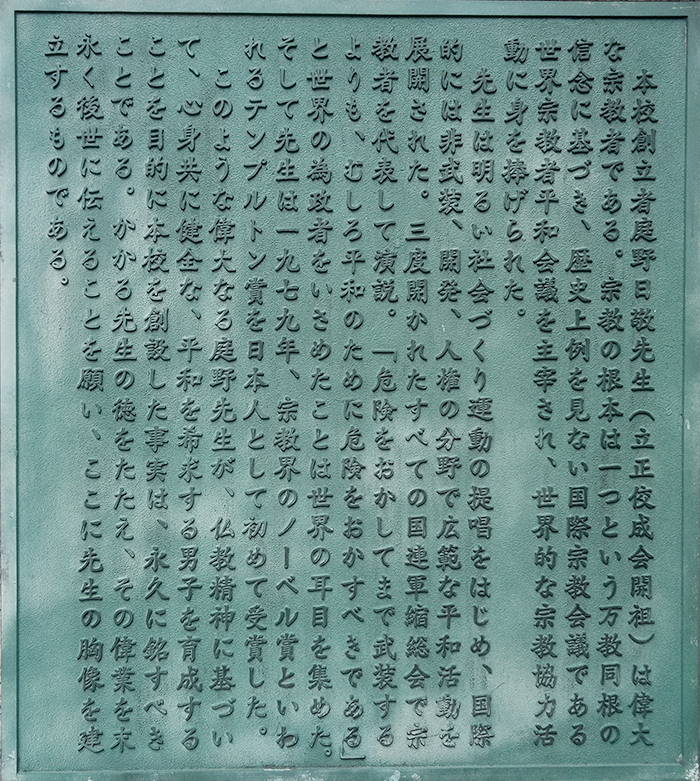 本校創立者庭野日敬先生（立正佼成会開祖）は偉大
な宗教者である。宗教の根本は一つという万教同根の
信念に基づき、歴史上例を見ない国際宗教会議である
世界宗教者平和会議を主宰され、世界的な宗教協力活
動に身を捧げられた。
先生は明るい社会づくり運動の提唱をはじめ、国際
的には非武装、開発、人権の分野で広範な平和活動を
展開された。三度開かれたすべての国連軍縮総会で宗
教者を代表して演説。「危険をおかしてまで武装する
よりも、むしろ平和のために危険をおかすべきである」
と世界の為政者をいさめたことは世界の耳目を集めた。
そして先生は一九七九年、宗教界のノーベル賞といわ
れるテンプルトン賞を日本人として初めて受賞した。
このような偉大なる庭野先生が、仏教精神に基づい
て、心身共に健全な、平和を希求する男子を育成する
ことを目的に本校を創設した事実は、永久に銘すべき
ことである。かかる先生の徳をたたえ、その偉業を末
永く後世に伝えることを願い、ここに先生の胸像を建
立するものである。